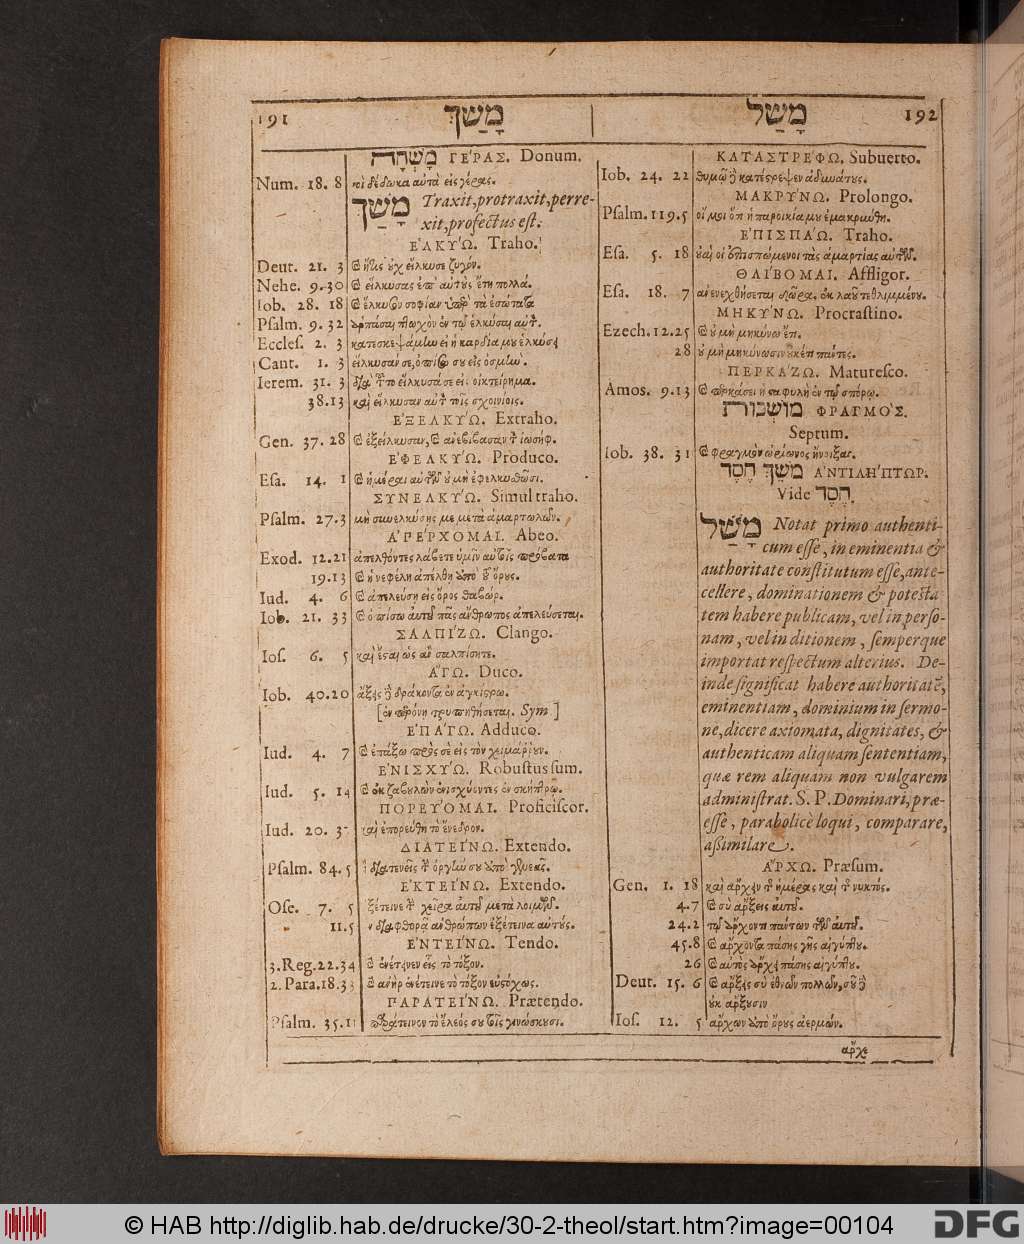 191 מָשַׁךְ
מָשְׁחָה ΓΕΡΑΣ. Donum.
Num. 18. 8 δέδωκα αὐτὰ εἰς γέρας.
מָשַׁךְ Traxit, protraxit, perre-
xit, profectus est.
ΕΛΚΥΏ. Traho.
Deut. 21. 3 ἥτις οὐχ εἵλκυσε ζυγόν.
Nehe. 9.30 εἵλκυσας ἐπ' αὐτοὺς ἔτη πολλά.
Iob. 28. 18 ἕλκυσον σοφίαν ὑπὲρ τὰ ἐσώτατα
Psalm. 9. 32 ἁρπάσαι πτωχὸν ἐν τῷ ἑλκύσαι αὐτ.
Eccles. 2. 3 κατεσκεψάμην εἰ ἡ καρδία μου ἑλκύσ
Cant. 1. 3 εἵλκυσάν σε, ὀπίσω σου εἰς ὀσμὴν.
Ierem. 31. 3 διὰ τοῦτο εἵλκυσά σε εἰς οἰκτείρημα.
38.13 καὶ εἵλκυσαν αὐτὸν τοῖς σχοινίοις.
ΕΞΕΛΚΥΏ. Extraho.
Gen. 37. 28 ἐξείλκυσαν, καὶ ἀνεβίβασαν τὸν ἰωσήφ.
ΕΦΕΛΚΥΏ. Produco.
Esa. 14. 1 αἱ ἡμέραι αὐτῶν οὐ μὴ ἐφελκυσθῶσι.
ΣΥΝΕΛΚΥΏ. Simul traho.
Psalm. 27.3 μὴ συνελκύσῃς με μετὰ ἁμαρτωλῶν.
ΑΠΕΡΧΟΜΑΙ. Abeo.
Exod. 12.21 ἀπελθόντες λάβετε ὑμῖν αὐτοῖς πρόβατα
19.13 ἡ νεφέλη ἀπέλθῃ ἀπὸ τοῦ ὄρους.
Iud. 4. 6 ἀπελεύσῃ εἰς ὄρος θαβώρ.
Iob. 21. 33 ὀπίσω αὐτοῦ πᾶς ἄνθρωπος ἀπελεύσεται.
ΣΑΛΠΙΖΩ. Clango.
Ios. 6. 5 καὶ ἔσται ὡς ἂν σαλπίσητε.
ΑΓΩ. Duco.
Iob. 40.20 ἄξεις δράκοντα ἐν ἀγκίστρῳ.
[ἐν περόνῃ τρυπηθήσεται. Sym.]
ΕΠΑΓΩ. Adduco.
Iud. 4. 7 ἐπάξω πρὸς σὲ εἰς τὸν χειμάρρουν.
ΕΝΙΣΧΥΏ. Robustus sum.
Iud. 5. 14 ἐκ ζαβουλὼν ἐνισχύοντες ἐν σκήπτρῳ.
ΠΟΡΕΥΟΜΑΙ. Proficiscor.
Iud. 20. 37 καὶ ἐπορεύθη τὸ ἔνεδρον.
ΔΙΑΤΕΙΝΩ. Extendo.
Psalm. 84. 5 διατενεῖς τὴν ὀργήν σου ἀπὸ γενεᾶς
ΕΚΤΕΙΝΩ. Extendo.
Ose. 7. 5 ξέτεινε τὴν χεῖρα αὐτοῦ μετὰ λοιμῶν.
11.5 ν διαφθορᾷ ἀνθρώπων ἐξέτεινα αὐτούς.
ΕΝΤΕΙΝΩ. Tendo.
3. Reg. 22.34 ἐνέτεινεν εἷς τὸ τόξον.
2. Para. 18.33 ἀνὴρ ἐνέτεινε τὸ τόξον εὐστόχως.
ΠΑΡΑΤΕΙΝΩ. Prætendo.
Psalm. 35.11 παράτεινον τὸ ἔλεός σου τοῖς γινώσκουσι.
מָשַׁל 192
ΚΑΤΑΣΤΡΕΦΩ. Subuerto.
Iob. 24. 22 θυμῷ κατέστρεψεν ἀδυνάτους.
ΜΑΚΡΥΝΩ. Prolongo.
Psalm. 119.5 οἴμοι ὅτι ἡ παροικία μου ἐμακρύνθη.
ΕΠΙΣΠΑΏ. Traho.
Esa. 5. 18 οὐαὶ οἱ ἐπισπώμενοι τὰς ἁμαρτίας αὐτῶν.
ΘΛΙΒΟΜΑΙ. Affligor.
Esa. 18. 7 ἀνενεχθήσεται δῶρα. ἐκ λαοῦ τεθλιμμένου.
ΜΗΚΥΝΩ. Procrastino.
Ezech. 12.25 οὐ μὴ μηκύνω ἔτι.
28 οὐ μὴ μηκύνωσιν οὐκέτι πάντες.
ΠΕΡΚΑΖΩ. Maturesco.
Amos. 9.13 περκάσει ἡ σταφυλὴ ἐν τῷ σπόρῳ.
מושכות ΦΡΑΓΜΟΣ.
Septum.
Iob. 38. 31 φραγμὸν ὠρίωνος ἤνοιξας.
מֹשֵׁךְ חֶסֶד ΑΝΤΙΛΗΠΤΩΡ.
Vide חֶסֶד.
מָשַׁל Notat primo authenti-
cum esse, in eminentia &
authoritate constitutum esse, ante-
cellere, dominationem & potesta
tem habere publicam, vel in perso-
nam, vel in ditionem, semperque
importat respectum alterius. De-
inde significat habere authoritatē,
eminentiam, dominium in sermo-
ne, dicere axiomata, dignitates, &
authenticam aliquam sententiam,
quæ rem aliquam non vulgarem
administrat. S. P. Dominari, præ-
esse, parabolicè loqui, comparare,
assimilare.
ΑΡΧΩ. Præsum.
Gen. 1. 18 καὶ ἄρχειν τῆς ἡμέρας καὶ τῆς νυκτός.
4.7 σὺ ἄρξεις αὐτοῦ.
24.2 τῷ ἄρχοντι πάντων τῶν αὐτοῦ.
45.8 ἄρχοντα πάσης γῆς αἰγύπτου.
26 αὐτὸς ἄρχει πάσης αἰγύπτου.
Deut. 15. 6 ἄρξεις σὺ ἐθνῶν πολλῶν, σοῦ
οὐκ ἄρξουσιν
Ios. 12. 5 ἄρχων ἀπὸ ὄρους ἀερμών.
ἄρχε
© HAB http://diglib.hab.de/drucke/30-2-theol/start.htm?image=00104
DFG